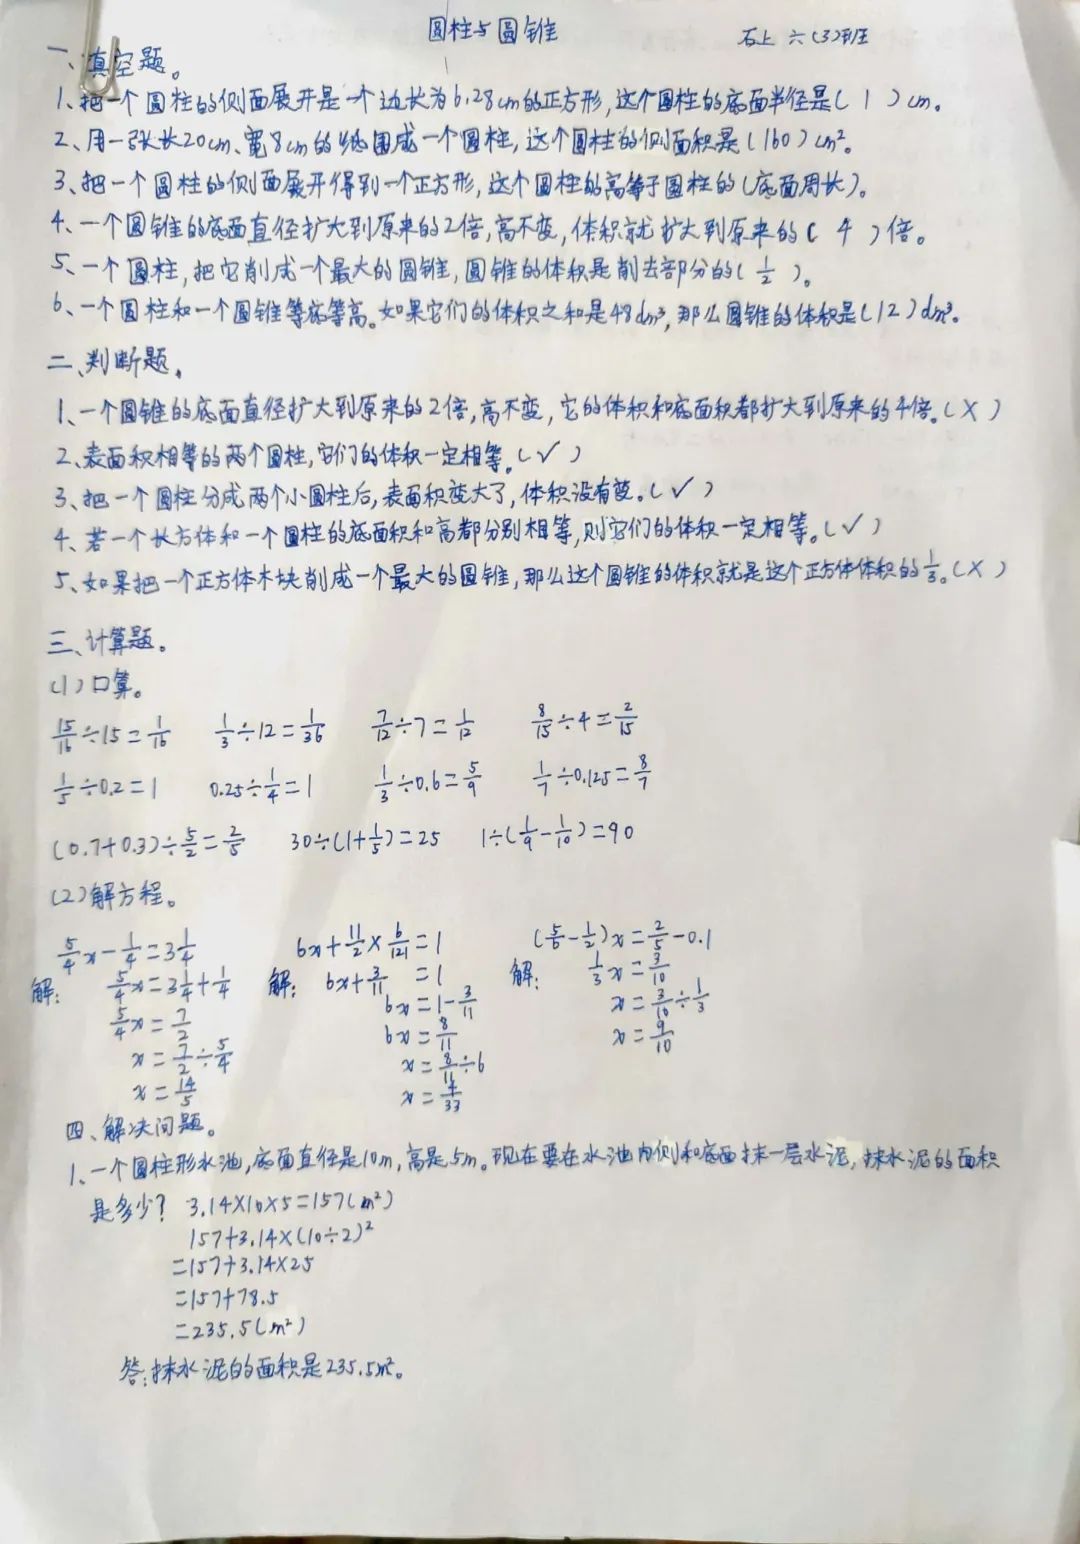 圆柱与圆锥
石上 六(3)班
一、填空题。
1、把一个圆柱的侧面展开是一个边长为6.28cm的正方形,这个圆柱的底面半径是(1)cm。
2、用一张长20cm、宽8cm的纸围成一个圆柱,这个圆柱的侧面积是(160)cm²。
3、把一个圆柱的侧面展开得到一个正方形,这个圆柱的高等于圆柱的(底面周长)。
4、一个圆锥的底面直径扩大到原来的2倍,高不变,体积就扩大到原来的(4)倍。
5、一个圆柱,把它削成一个最大的圆锥,圆锥的体积是削去部分的(1/2)。
6、一个圆柱和一个圆锥等底等高。如果它们的体积之和是48dm³,那么圆锥的体积是(12)dm³。
二、判断题。
1、一个圆锥的底面直径扩大到原来的2倍,高不变,它的体积和底面积都扩大到原来的4倍。(×)
2、表面积相等的两个圆柱,它们的体积一定相等。(√)
3、把一个圆柱分成两个小圆柱后,表面积变大了,体积没有变。(√)
4、若一个长方体和一个圆柱的底面积和高都分别相等,则它们的体积一定相等。(√)
5、如果把一个正方体木块削成一个最大的圆锥,那么这个圆锥的体积就是这个正方体体积的1/3。(×)
三、计算题。
(1)口算。
15/16÷15=1/16 1/3÷12=1/36 7/12÷7=1/12 8/15÷4=2/15
1/5÷0.2=1 0.25÷1/4=1 1/3÷0.6=5/9 1/7÷0.125=8/7
(0.7+0.3)÷5/2=2/5 30÷(1+1/5)=25 1÷(1/9-1/10)=90
(2)解方程。
5/4x-1/4=3 1/4 6x+11/2×6/121=1 (5/6-1/2)x=2/5-0.1
解: 5/4x=3 1/4+1/4 解: 6x+3/11=1 解: 1/3x=3/10
5/4x=7/2 6x=1-3/11 x=3/10÷1/3
x=7/2÷5/4 6x=8/11 x=9/10
x=14/5 x=8/11÷6
x=4/33
四、解决问题。
1、一个圆柱形水池,底面直径是10m,高是5m。现在要在水池内侧和底面抹一层水泥,抹水泥的面积
是多少? 3.14×10×5=157(m²)
157+3.14×(10÷2)²
=157+3.14×25
=157+78.5
=235.5(m²)
答:抹水泥的面积是235.5m²。